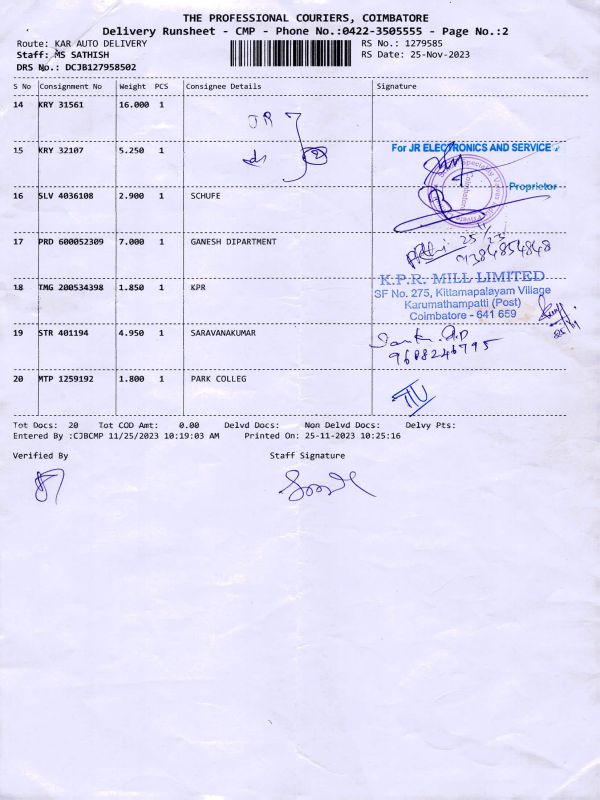 THE PROFESSIONAL COURIERS, COIMBATORE
Delivery Runsheet - CMP - Phone No.:0422-3505555 - Page No.:2
Route: KAR AUTO DELIVERY RS No.: 1279585
Staff: MS SATHISH RS Date: 25-Nov-2023
DRS No.: DCJB127958502
S No Consignment No Weight PCS Consignee Details Signature
14 KRY 31561 16.000 1 JR
15 KRY 32107 5.250 1
For JR ELECTRONICS AND SERVICE
Proprietor
16 SLV 4036108 2.900 1 SCHUFE
17 PRD 600052309 7.000 1 GANESH DIPARTMENT
9384854848
K.P.R. MILL LIMITED
18 TMG 200534398 1.850 1 KPR
SF No. 275, Kittampalayam Village
Karumathampatti (Post)
Coimbatore - 641 659
19 STR 401194 4.950 1 SARAVANAKUMAR
9688246795
20 MTP 1259192 1.800 1 PARK COLLEG
Tot Docs: 20 Tot COD Amt: 0.00 Delvd Docs: Non Delvd Docs: Delvy Pts:
Entered By :CJBCMP 11/25/2023 10:19:03 AM Printed On: 25-11-2023 10:25:16
Verified By Staff Signature